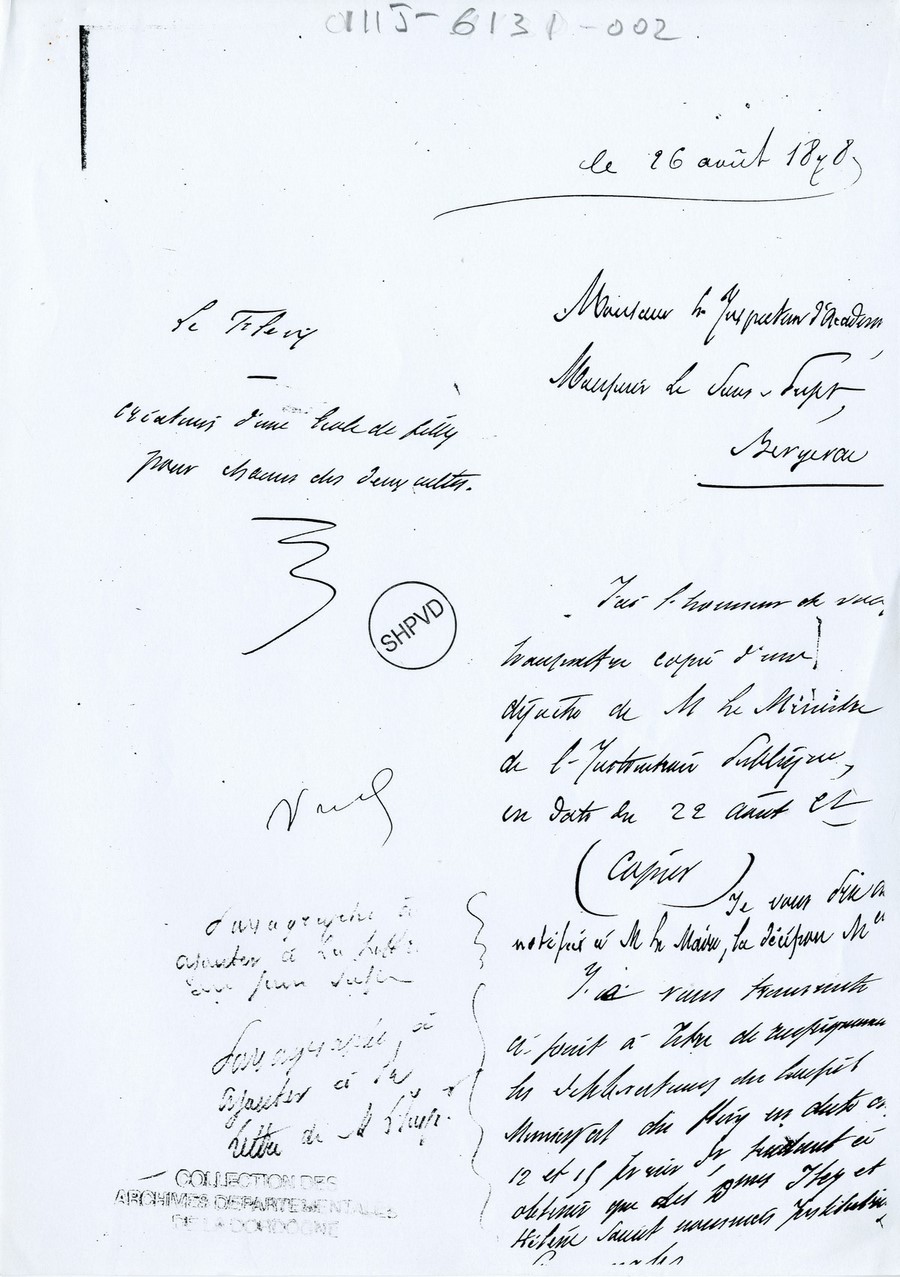 le 26 août 1878
Monsieur le Inspecteur d'Académ
Monsieur le Sous-Préft,
Bergerac
Le Fleix
créations d'une école de filles
pour chacun des deux cultes.
SHPVD
J'ai l'honneur de vous
transmettre copie d'une
dépêche de M le Ministre
de l'Instruction Publique,
en date du 22 août et
(Copier)
Je vous prie
notifier à M le Maire, la décision Mlle
J'ai vous transmets
ci-joint à titre de renseignements
les délibérations du Conseil
Municipal du Fleix en date
12 et 15 février tendant à
obtenir que les Dmes et
Hélène soient nommées Institutrices
Paragraphe à
ajouter à la lettre
Paragraphe à
ajouter à la
lettre de M
COLLECTION DES
ARCHIVES DEPARTEMENTALES
DE LA DORDOGNE